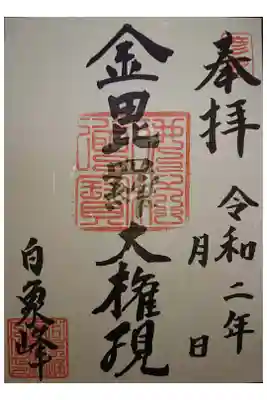 奉拝
令和二年
月 日
金毘羅大権現
白象峰